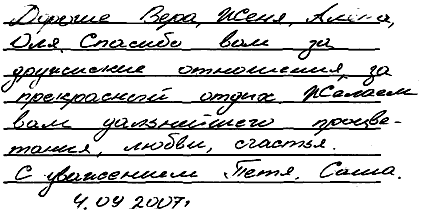 Дорогие Вера, Женя, Алина,
Оля. Спасибо вам за
дружеские отношения, за
прекрасный отдых. Желаем
вам дальнейшего процве-
тания, любви, счастья.
С уважением Петя, Саша.
4.09 2007г